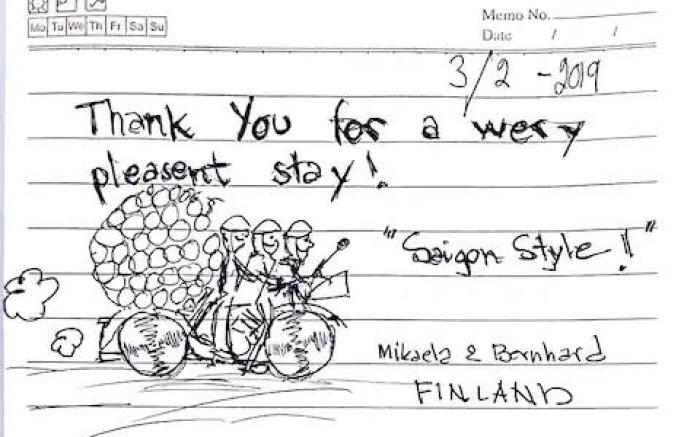 Memo No.
Mo Tu We Th Fr Sa Su
Date / /
3/2 -2019
Thank You for a wery
pleasent stay!
"Saigon Style!"
Mikaela & Bernhard
FINLAND